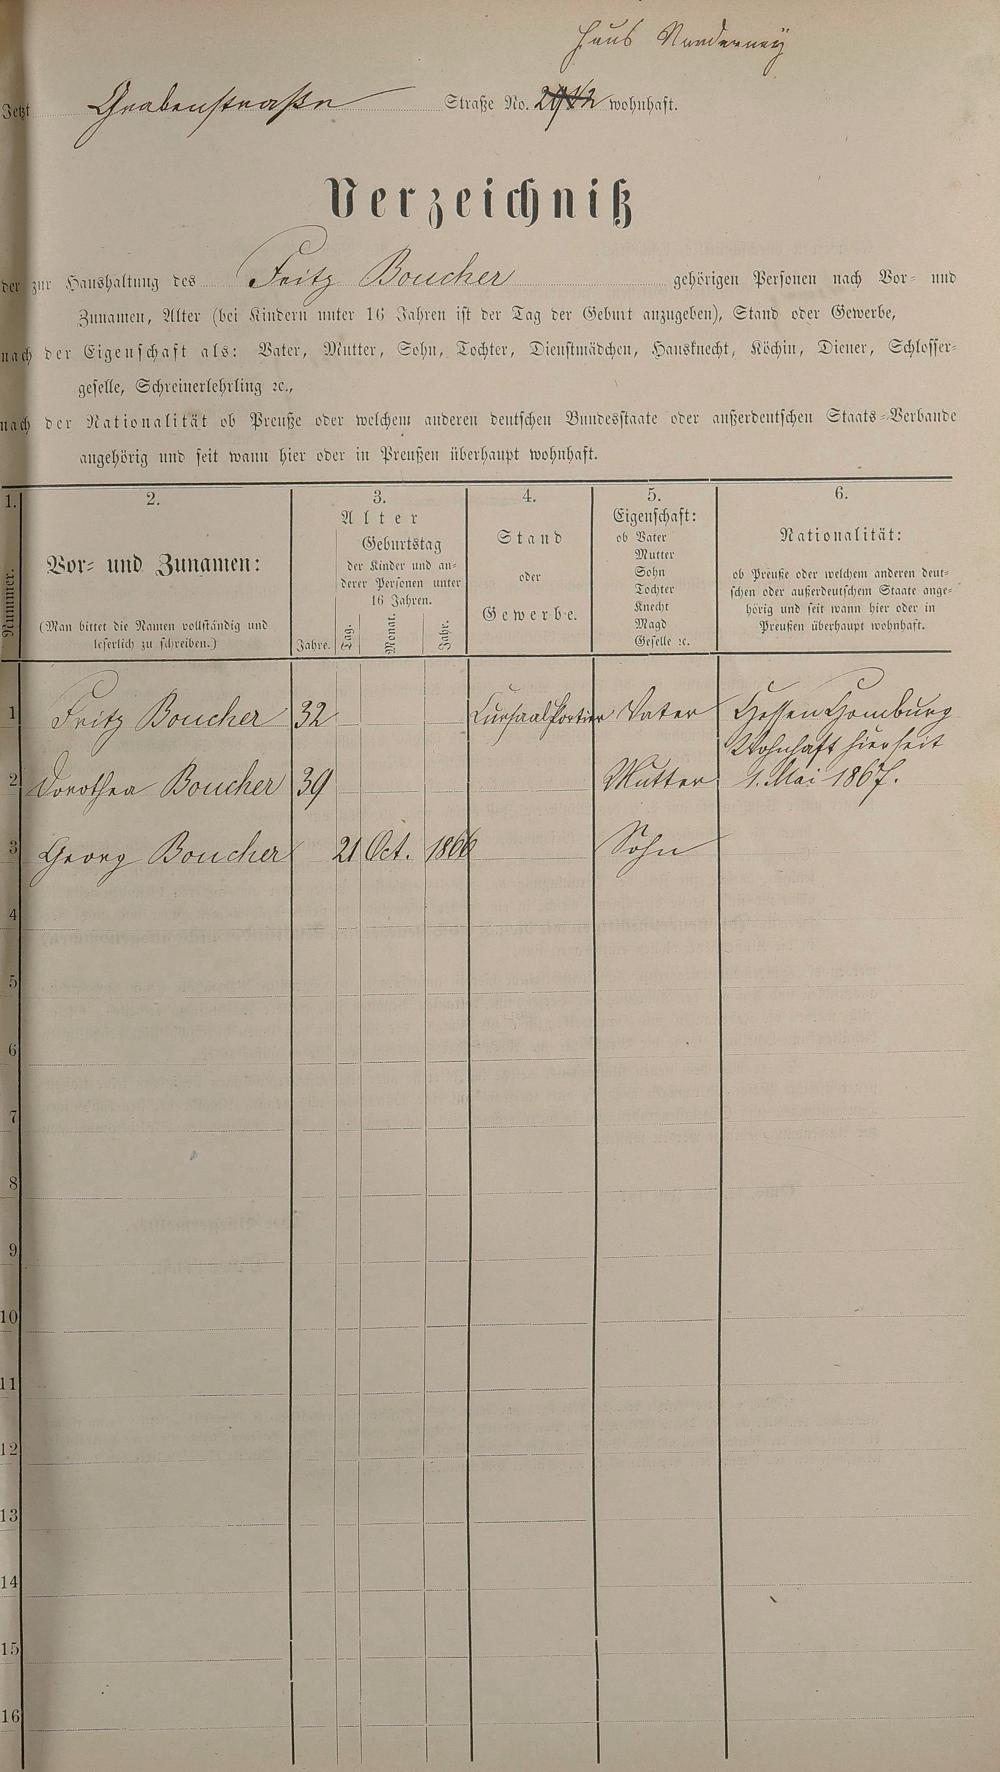 Haus Norderney
Jetzt Grabenstraße Straße No. wohnhaft.
Verzeichniß
der zur Haushaltung des Fritz Boucher gehörigen Personen nach Vor- und
Zunamen, Alter (bei Kindern unter 16 Jahren ist der Tag der Geburt anzugeben), Stand oder Gewerbe,
nach der Eigenschaft als: Vater, Mutter, Sohn, Tochter, Dienstmädchen, Hausknecht, Köchin, Diener, Schlosser-
geselle, Schreinerlehrling ꝛc.,
nach der Nationalität ob Preuße oder welchem anderen deutschen Bundesstaate oder außerdeutschen Staats-Verbande
angehörig und seit wann hier oder in Preußen überhaupt wohnhaft.
1. 2. 3. 4. 5. 6.
Nummer.
Vor- und Zunamen:
(Man bittet die Namen vollständig und
leserlich zu schreiben.)
Alter
Jahre.
Geburtstag
der Kinder und an-
derer Personen unter
16 Jahren.
Tag. Monat. Jahr.
Stand
oder
Gewerbe.
Eigenschaft:
ob Vater
Mutter
Sohn
Tochter
Knecht
Magd
Geselle ꝛc.
Nationalität:
ob Preuße oder welchem anderen deut-
schen oder außerdeutschem Staate ange-
hörig und seit wann hier oder in
Preußen überhaupt wohnhaft.
1 Fritz Boucher 32 Cursaalportier Vater Hessen Homburg
Wohnhaft hier seit
2 Dorothea Boucher 39 Mutter 1. Mai 1867.
3 Georg Boucher 21 Oct. 1866 Sohn
4
5
6
7
8
9
10
11
12
13
14
15
16